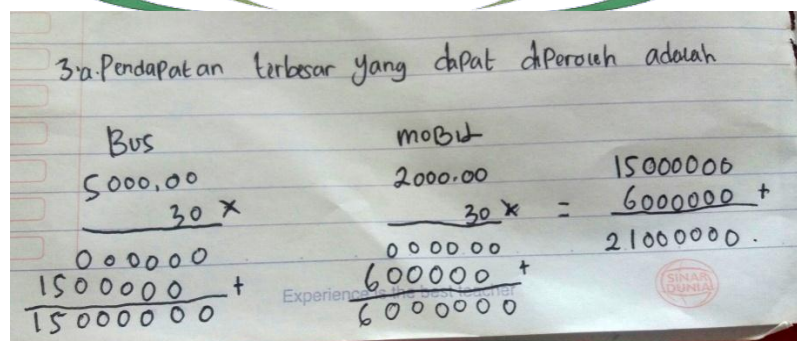 3.a. Pendapatan terbesar yang dapat diperoleh adalah
Bus
5000,00
30 ×
000000
1500000 +
15000000
mobil
2000.00
30 ×
0000.00
600000 +
6000000
=
15000000
6000000 +
21000000.
Experience is the best teacher
SINAR DUNIA